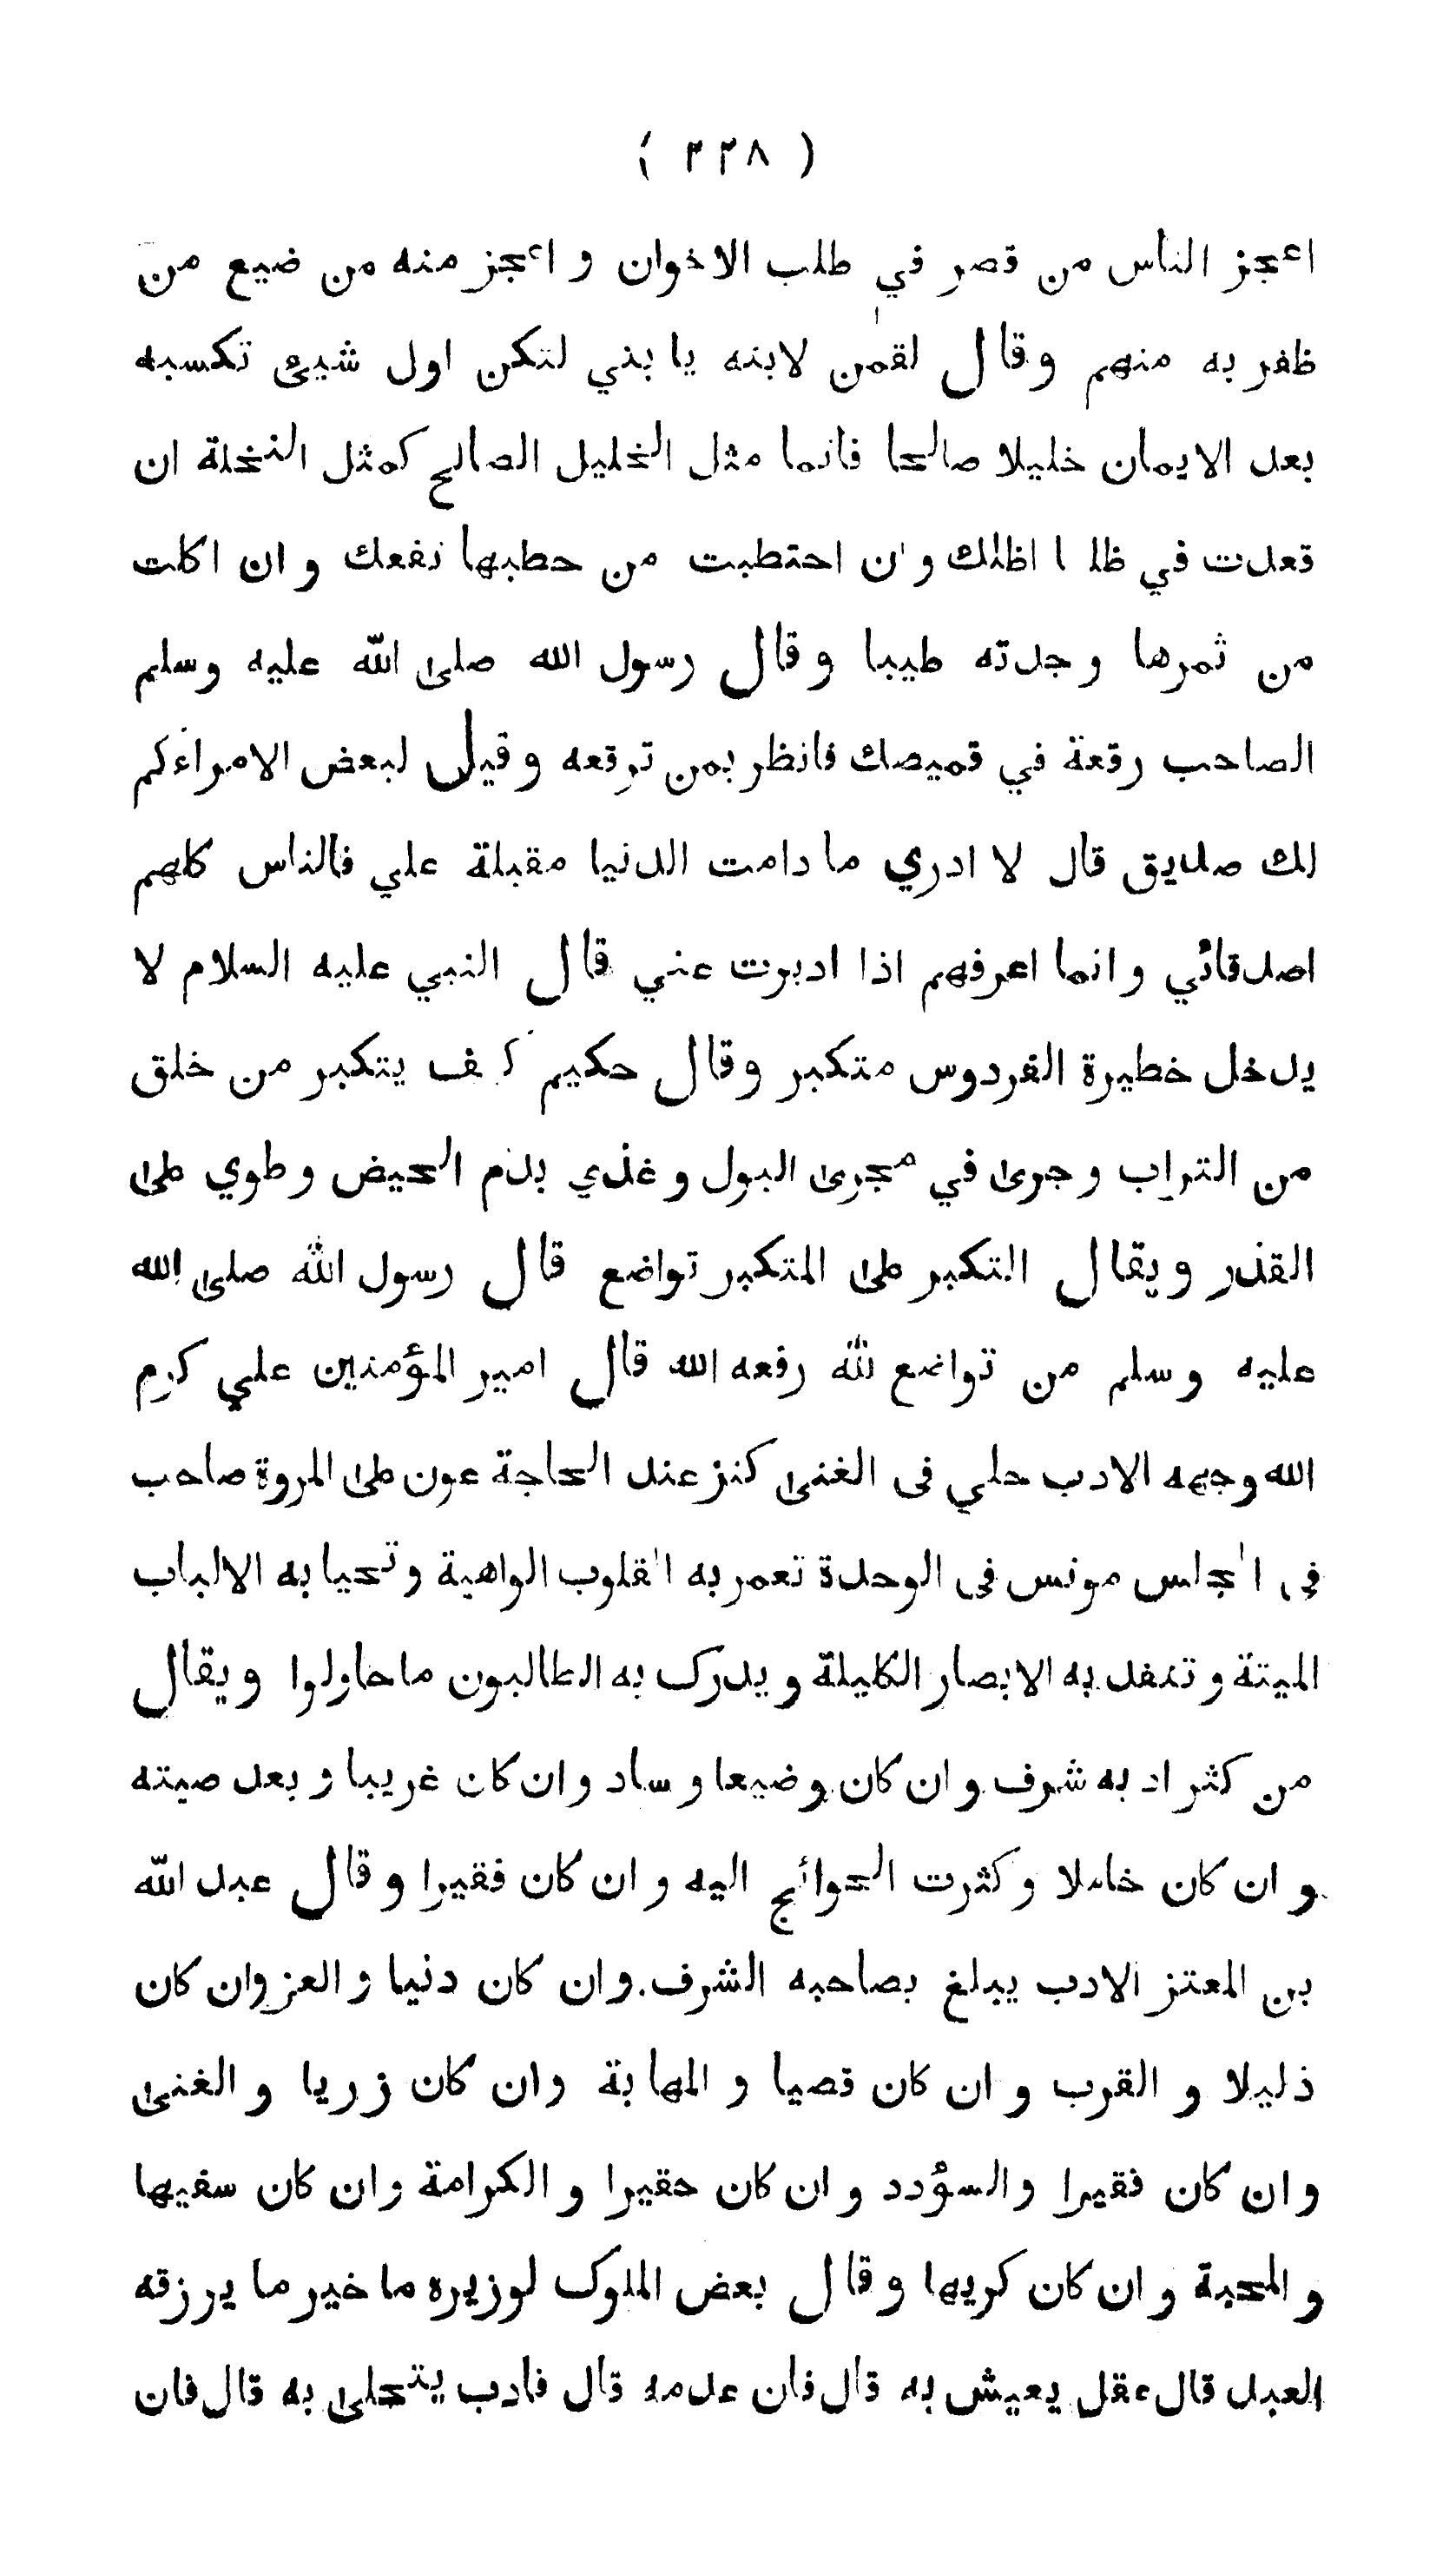 ( ٣٣٨ )
اعجز الناس من قصر في طلب الاخوان و اعجز منه من ضيع من
ظفر به منهم وقال لقمٰن لابنه يا بني لتكن اول شيئ تكسبه
بعد الايمان خليلا صالحا فانما مثل الخليل الصالح كمثل النخلة ان
قعدت في ظلها اظلك وان احتطبت من حطبها نفعك و ان اكلت
من ثمرها وجدته طيبا وقال رسول الله صلى الله عليه وسلم
الصاحب رقعة في قميصك فانظر بمن ترقعه وقيل لبعض الامراء كم
لك صديق قال لا ادري ما دامت الدنيا مقبلة علي فالناس كلهم
اصدقائي و انما اعرفهم اذا ادبرت عني قال النبي عليه السلام لا
يدخل خطيرة الفردوس متكبر وقال حكيم كيف يتكبر من خلق
من التراب وجرى في مجرى البول و غذي بدم الحيض وطوي على
القذر ويقال التكبر على المتكبر تواضع قال رسول الله صلى الله
عليه وسلم من تواضع لله رفعه الله قال امير المؤمنين علي كرم
الله وجهه الادب حلي فى الغنى كنز عند الحاجة عون على المروة صاحب
فى المجلس مونس فى الوحدة تعمر به القلوب الواهية وتحيا به الالباب
الميتة و تنفد به الابصار الكليلة و يدرك به الطالبون ما حاولوا ويقال
من كثر ادبه شرف و ان كان وضيعا و ساد و ان كان غريبا و بعد صيته
و ان كان خاملا وكثرت الحوائج اليه و ان كان فقيرا وقال عبد الله
بن المعتز الادب يبلغ بصاحبه الشرف وان كان دنيا و العز وان كان
ذليلا و القرب و ان كان قصيا و المهابة وان كان زريا و الغنى
وان كان فقيرا والسؤدد و ان كان حقيرا و الكرامة وان كان سفيها
و المحبة و ان كان كريها وقال بعض الملوك لوزيره ما خير ما يرزقه
العبد قال عقل يعيش به قال فان عدمه قال فادب يتحلى به قال فان